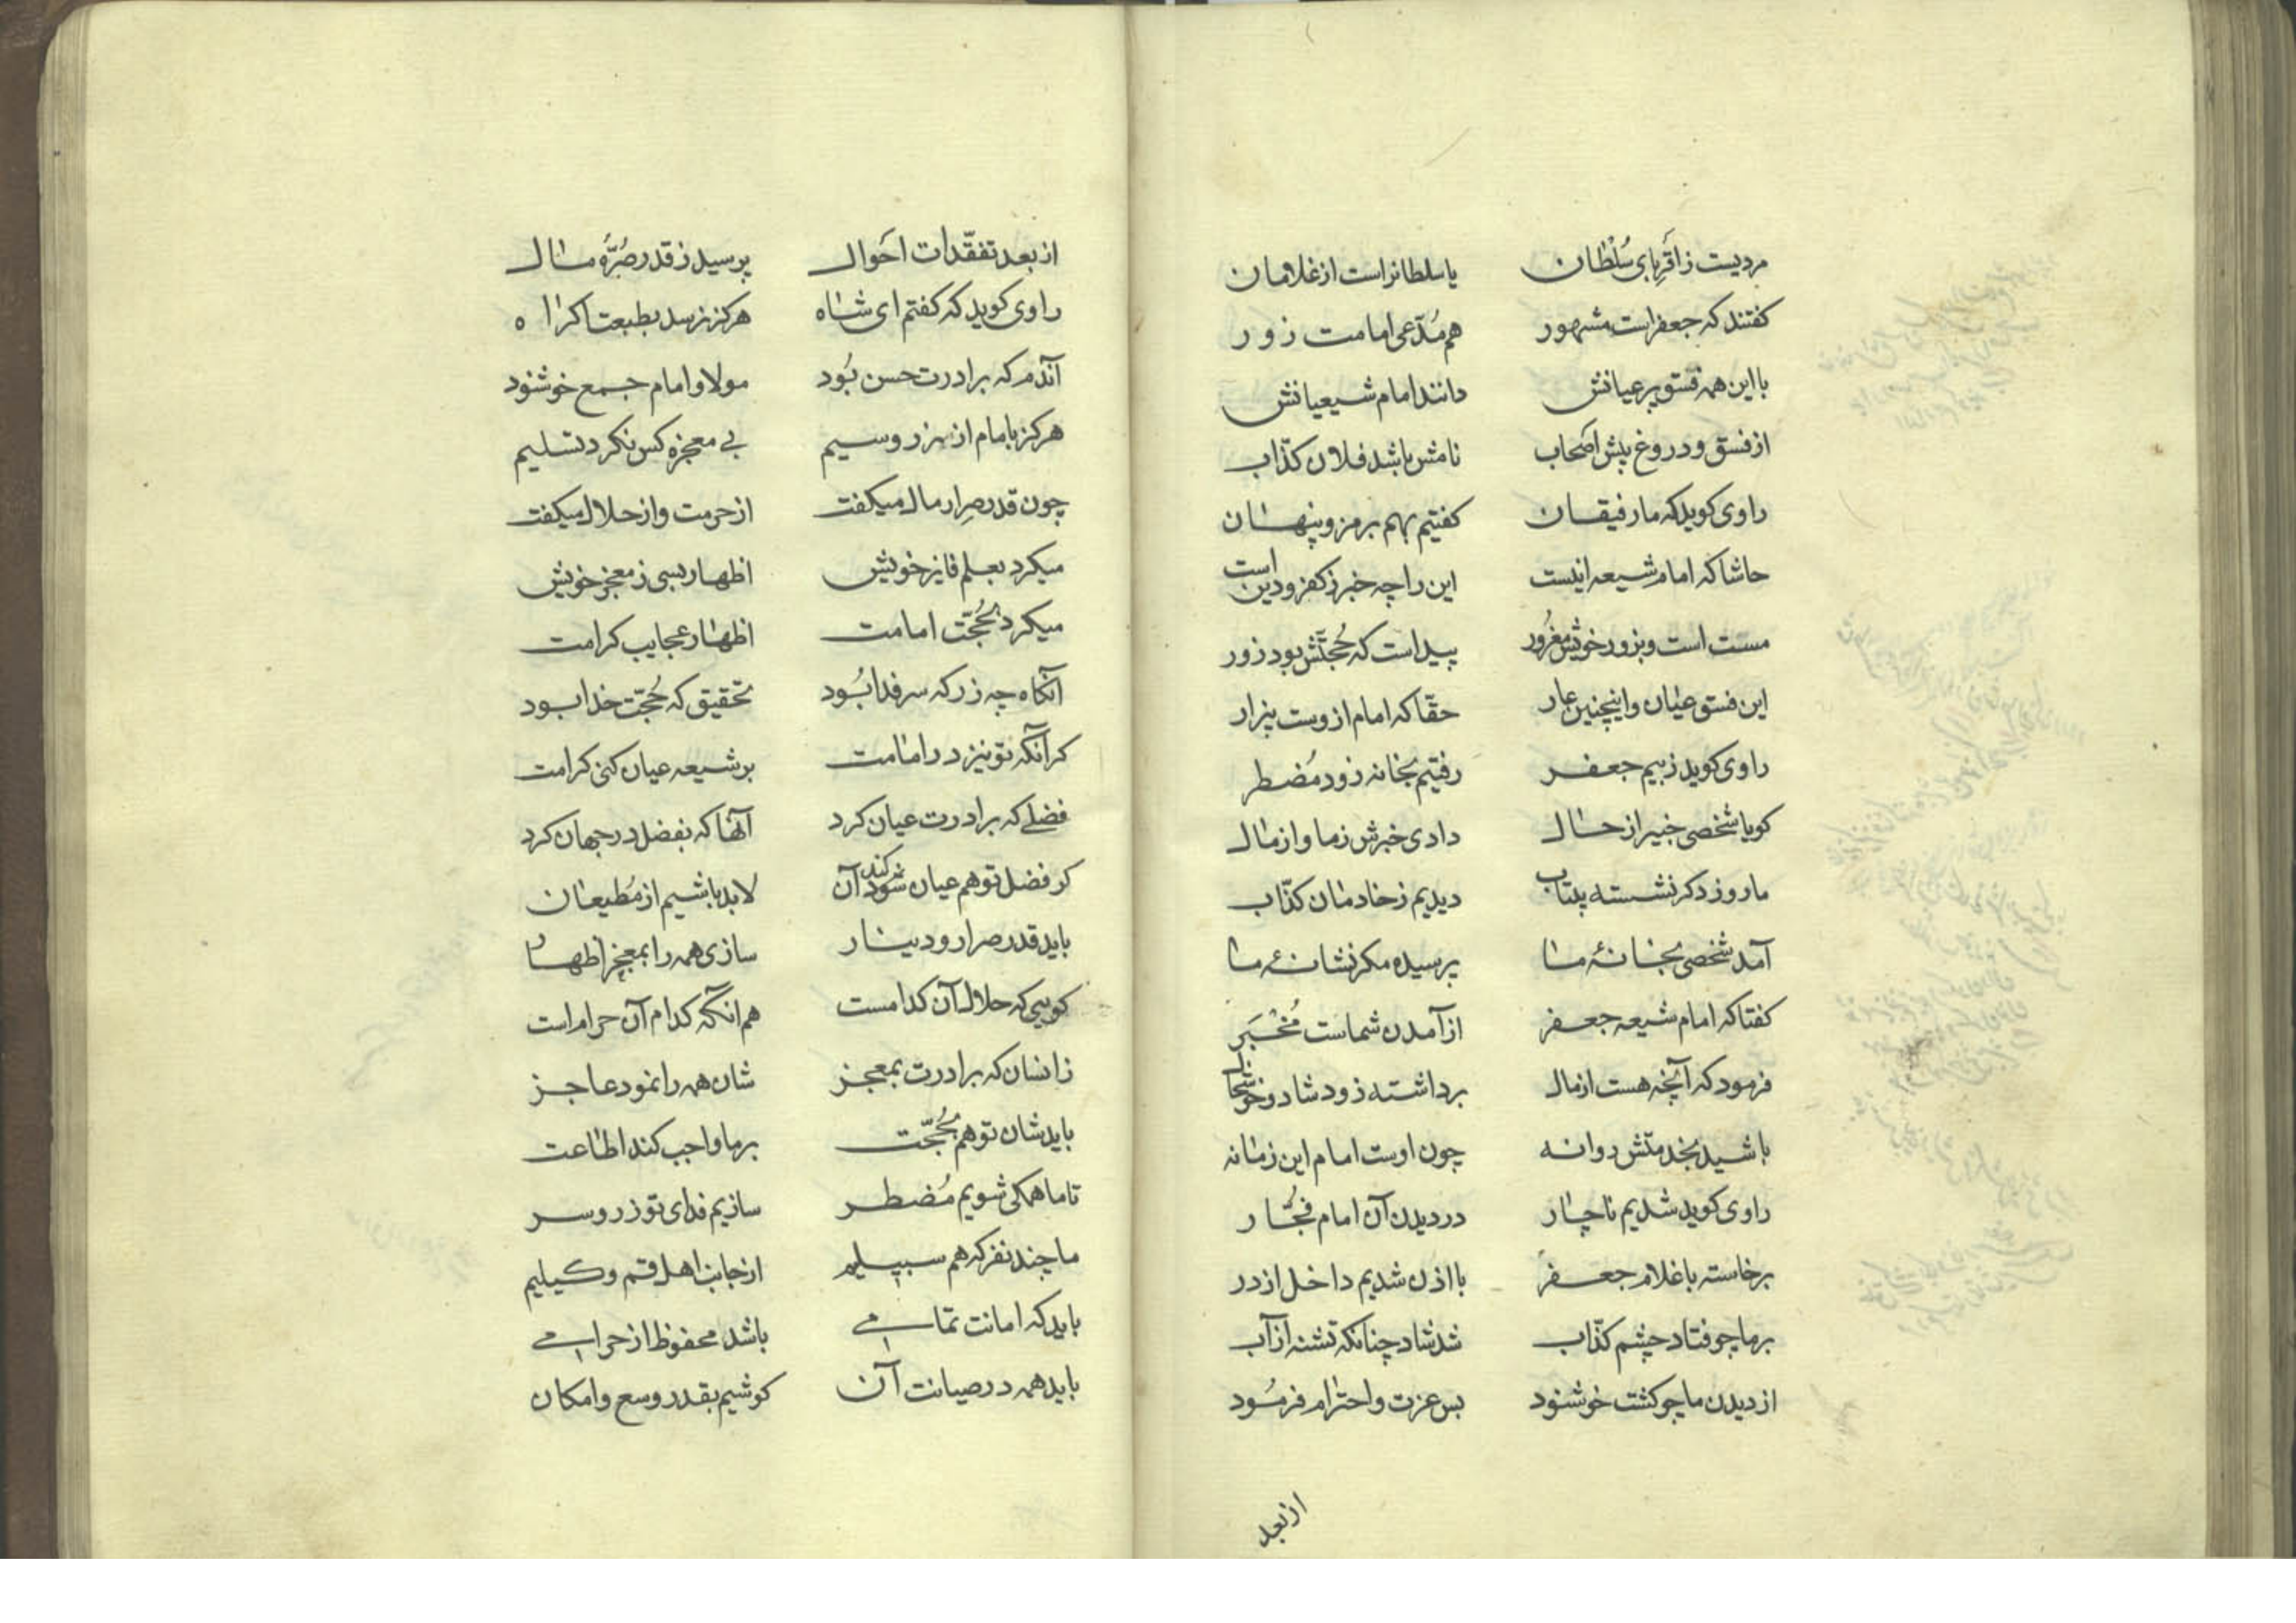 مردیست ز اقربای سلطان یا سلطانراست از غلامان
کفتند که جعفر است مشهور هم مدّعی امامت زور
با این همه فسق بر عیانش دانند امام شیعیانش
از فسق و دروغ پیش اصحاب نامش باشد فلان کذّاب
راوی کوید که ما رفیقان کفتیم بهم برمز و پنهان
حاشا که امام شیعه اینست این را چه خبر ز کفر و دین است
مست است و بزور خویش مغرور پیداست که حُجتّش بود زور
این فسق عیان و اینچنین عار حقّا که امام ازوست بیزار
راوی کوید ز بیم جعفر رفتیم بخانه زود مُضطر
کویا شخصی خبیر از حال دادی خبرش ز ما و از مال
ما روز دکر نشسته بیتاب دیدیم ز خادمان کذّاب
آمد شخصی بخانهٔ ما پرسیده مکر نشانهٔ ما
کفتا که امام شیعه جعفر از آمدن شماست مُخْبَر
فرمود که آنچه هست از مال برداشته زود شاد و خوشحال
باشید بخدمتش روانه چون اوست امام این زمانه
راوی کوید شدیم ناچار در دیدن آن امام فجّار
برخاسته با غلام جعفر با اذن شدیم داخل از در
بر ما چو فتاد چشم کذّاب شد شاد چنانکه تشنه از آب
از دیدن ما چو کشت خوشنود بس عزت و احترام فرمُود
از بعد
از بعد تفقّدات احوال پرسید ز قدر صُرّهٔ مال
راوی کوید که کفتم ای شاه هرکز نرسد بطبعت اکراه
آندم که برادرت حسن بُود مولا و امام جمع خوشنود
هرکز بامام از زر و سیم بی معجزه کس نکرد تسلیم
چون قدر صرار مال میکفت از حرمت و از حلال میکفت
میکرد بعلم فایز خویش اظهار بسی ز معجز خویش
میکرد بحُجّت امامت اظهار عجایب کرامت
آنکاه چه زر که سر فدا بُود تحقیق که حُجّت خدا بود
کر آنکه تو نیز در امامت بر شیعه عیان کنی کرامت
فضلی که برادرت عیان کرد آنها که بفضل در جهان کرد
کر فضل تو هم عیان شود آن لابد باشیم از مُطیعان
باید قدر صرار و دینار سازی همه را بمعجز اظهار
کویی که حلال آن کدامست هم آنکه کدام آن حرام است
زانسان که برادرت بمعجز شان همه را نمود عاجز
باید شان تو هم بحُجّت بر ما واجب کند اطاعت
تا ما همکی شویم مُضطر سازیم فدای تو زر و سر
ما چند نفر که هم سبیلیم از جانب اهل قم وکیلیم
باید که امانت تمامی باشد محفوظ از حرامی
باید همه در صیانت آن کوشیم بقدر وسع و امکان